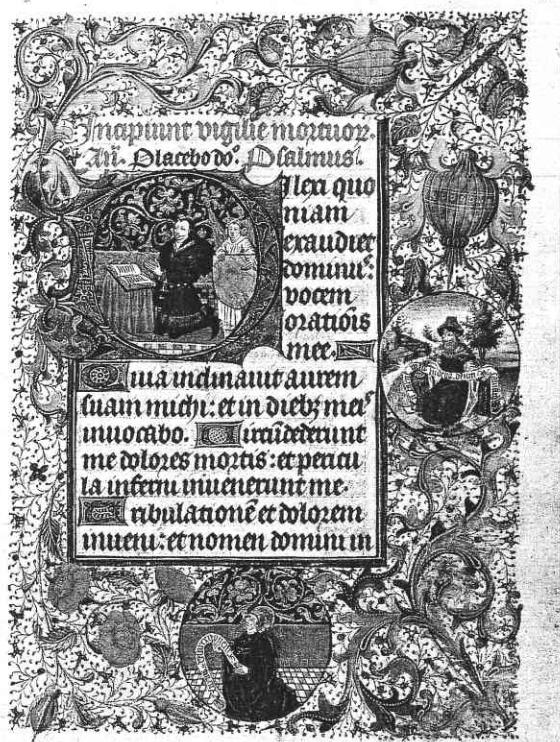 Incipiunt vigilie mortuor.
Añ. Placebo do°. Psalmus.
ilexi quo
niam
exaudiet
dominus:
vocem
oratiõis
mee.
Quia inclinavit aurem
suam michi: et in diebꝫ meis
invocabo. Circũdederunt
me dolores mortis: et pericu
la inferni invenerunt me.
Tribulationẽ et dolorem
inveni: et nomen domini in